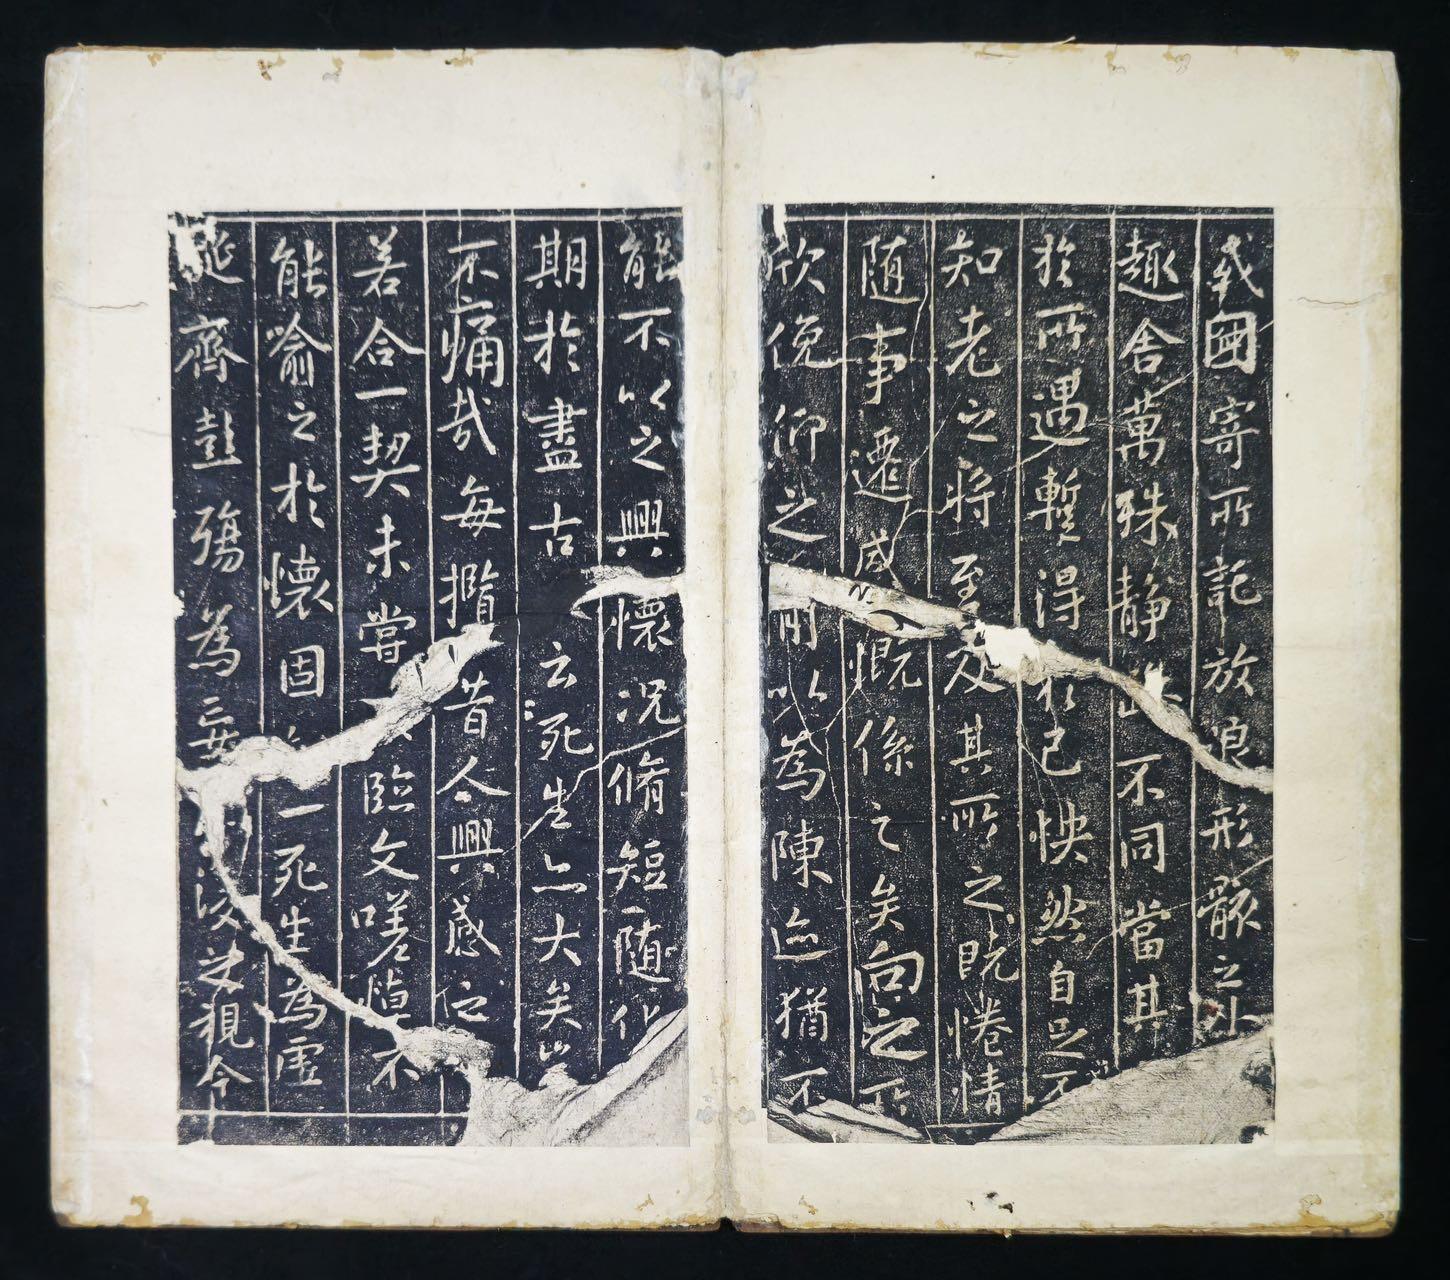 或因寄所託放浪形骸之外
趣舍萬殊静躁不同當其
於所遇暫得於己怏然自足不
知老之將至及其所之既惓情
随事遷感慨係之矣向之所
欣俛仰之間以為陳迹猶不
能不以之興懷況脩短随化
期於盡古云死生亦大矣豈
不痛哉每攬昔人興感之
若合一契未嘗臨文嗟悼不
能喻之於懷固一死生為虛
誕齊彭殤為妄後之視今